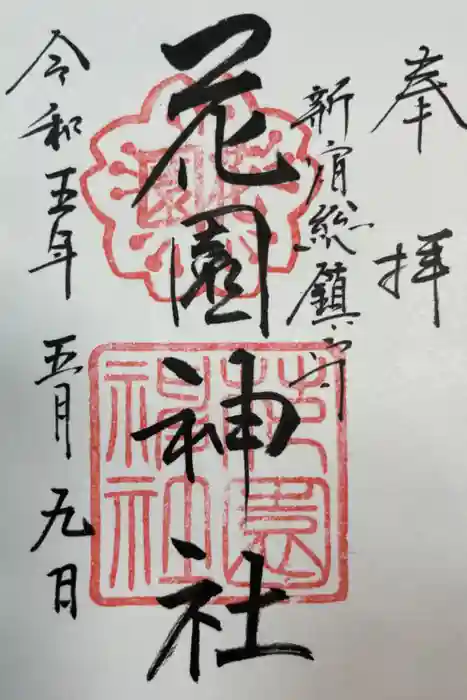 奉拝
新宿総鎮守
花園神社
令和五年五月九日